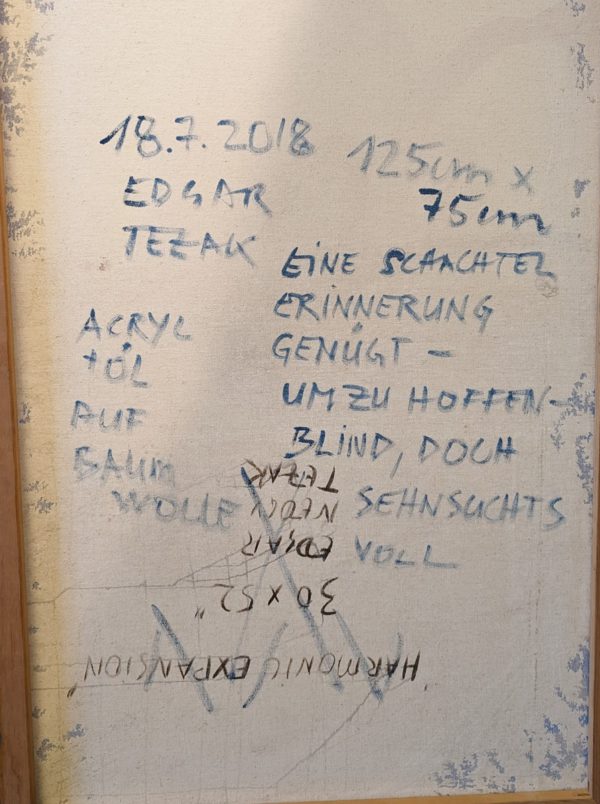 18.7.2018
125cm x
75cm
EDGAR
TEZAK
ACRYL
+ ÖL
AUF
BAUM
WOLLE
EINE SCHACHTEL
ERINNERUNG
GENÜGT –
UM ZU HOFFEN –
BLIND, DOCH
SEHNSUCHTS
VOLL
"HARMONIC EXPANSION"
30 x 52"
EDGAR
TEZAK